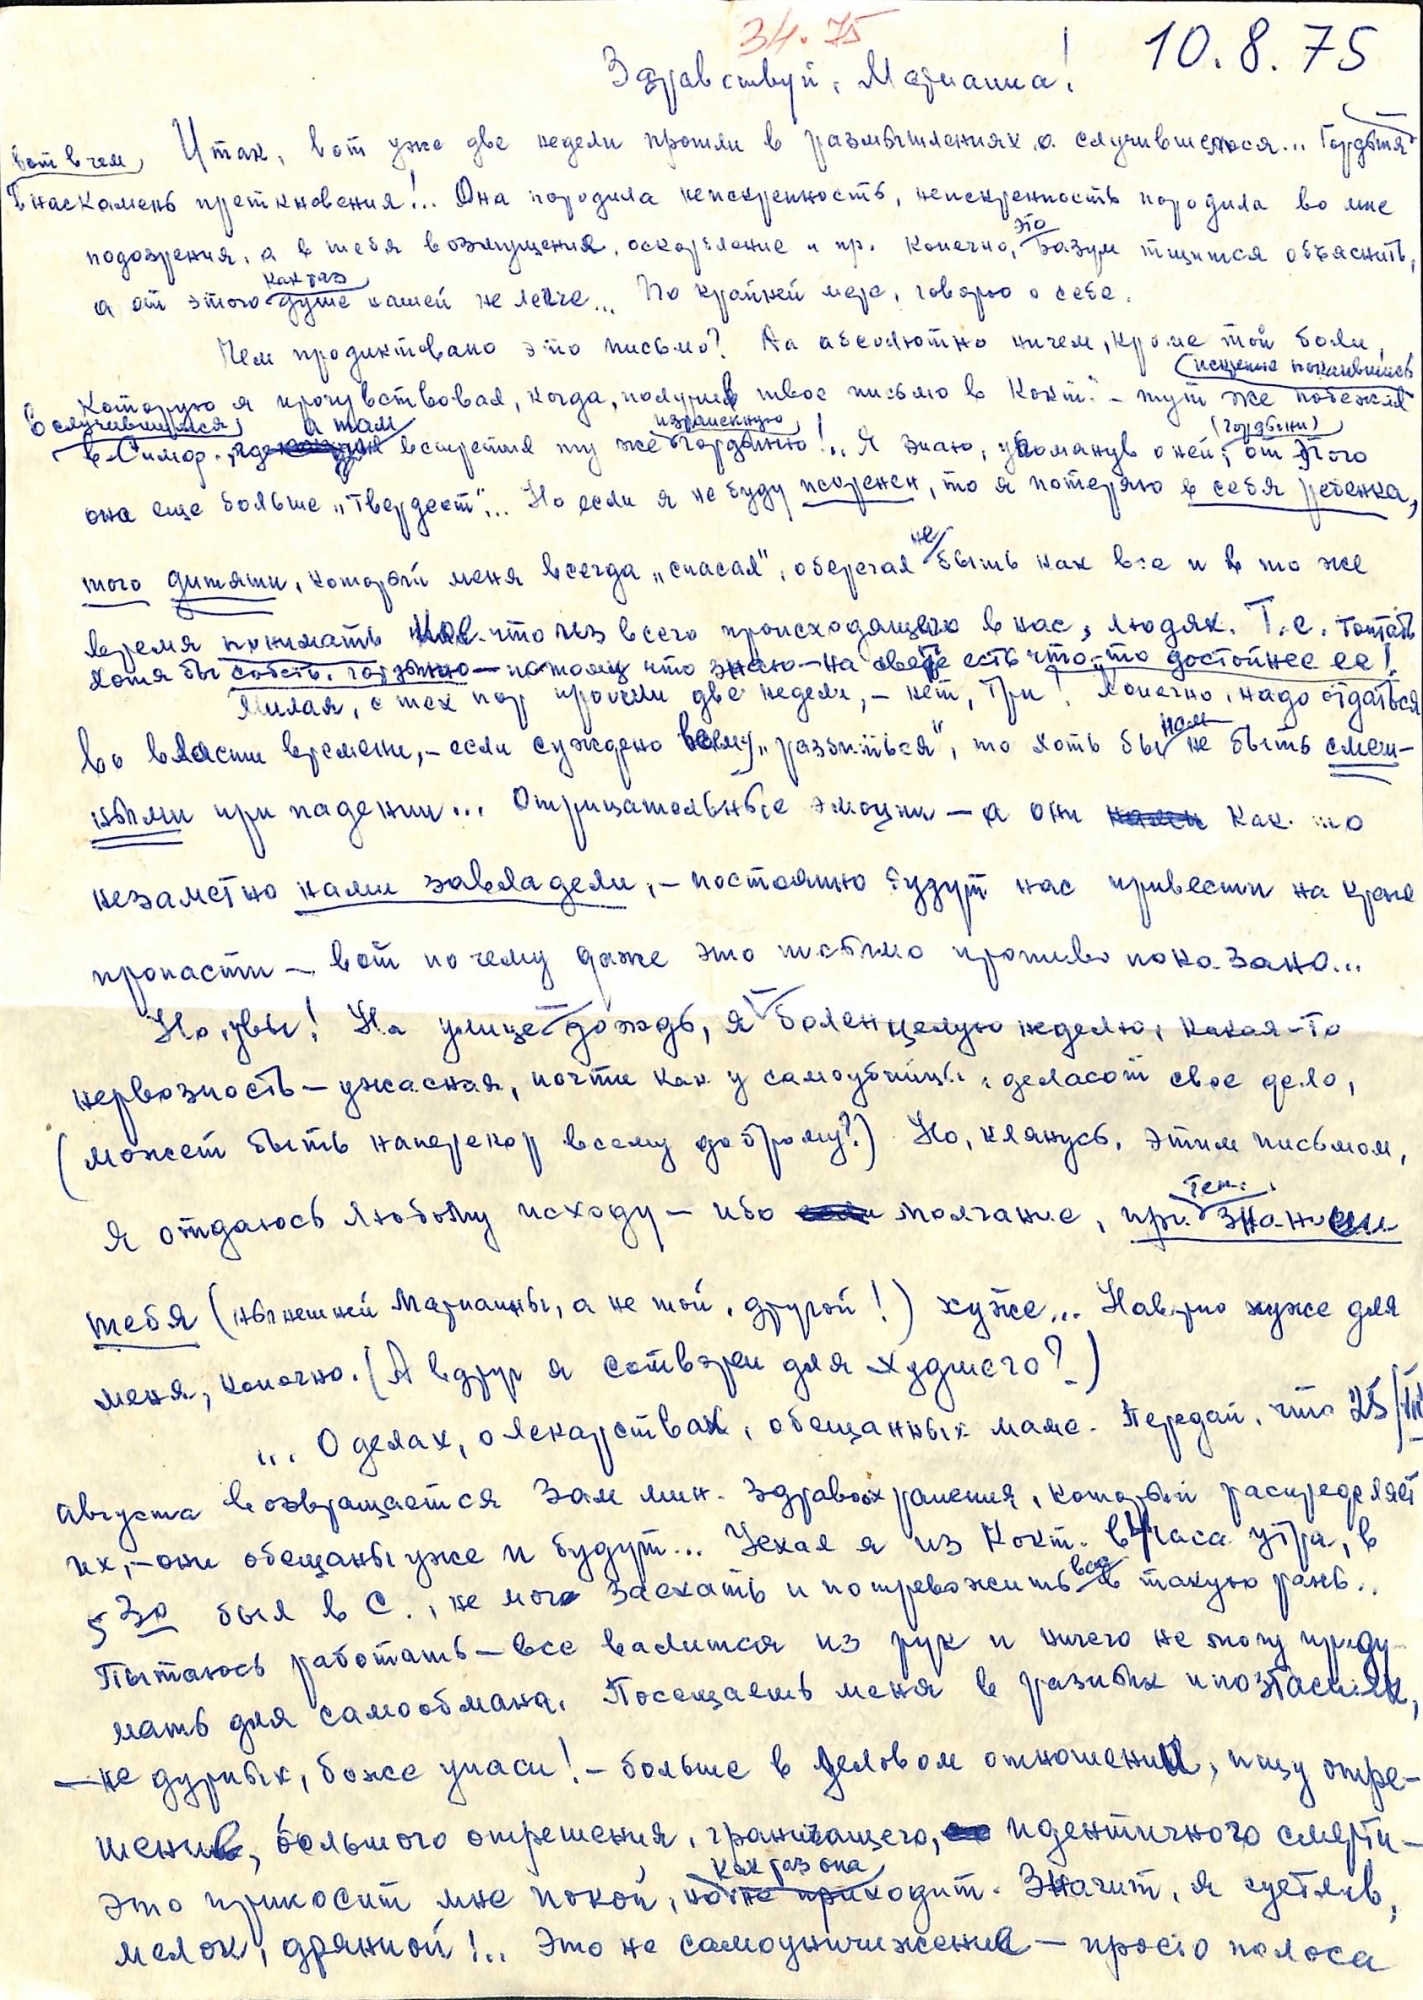 34.75
10.8.75
Здравствуй, Марианна!
Итак, вот уже две недели прошли в размышлениях о случившемся... Гордыня
вот в чем
в нас камень преткновения!.. Она породила неискренность, неискренность породила во мне
подозрения, а в тебя возмущения, оскорбление и пр. Конечно, это разум тщится объяснить,
а от этого как раз душе нашей не легче... По крайней мере, говорю о себе.
Чем продиктовано это письмо? Да абсолютно ничем, кроме той боли,
которую я прочувствовал, когда, получив твое письмо в Кокт. – тут же побежал
искренне покаявшись
в случившимся,
в Симф., где а там встретил ту же израненную гордыню!.. Я знаю, упомянув о ней, (гордыни) от этого
она еще больше „твердеет"... Но если я не буду искренен, то я потеряю в себя ребенка,
того дитяти, который меня всегда „спасал", оберегал не быть как все и в то же
время понимать кое-что из всего происходящего в нас, людях. Т.е. топтать
хотя бы собств. гордыню – потому что знаю – на свете есть что-то достойнее ее!
Милая, с тех пор прошли две недели, – нет, три! Конечно, надо отдаться
во власти времени, – если суждено всему „разбиться", то хоть бы нам не быть смеш-
ными при падении... Отрицательные эмоции – а они как-то
незаметно нами завладели, – постоянно будут нас привести на краю
пропасти – вот почему даже это письмо противопоказано...
Но, увы! На улице – дождь, я – болен целую неделю, какая-то
нервозность – ужасная, почти как у самоубийцы, делают свое дело,
(может быть наперекор всему доброму?) Но, клянусь, этим письмом,
я отдаюсь любому исходу – ибо молчание, при знании
тебя (нынешней Марианны, а не той, другой!) хуже... Наверно хуже для
меня, конечно. (А вдруг я сотворен для худшего?)
... О делах, о лекарствах, обещанных маме. Передай, что 25/VIII
августа возвращается зам мин. здравоохранения, который распределяет
их, – они обещаны уже и будут... Уехал я из Кокт. в 4 часа утра, в
5 30 был в С., не мог заехать и потревожить вас в такую рань..
Пытаюсь работать – все валится из рук и ничего не могу приду-
мать для самообмана. Посещаешь меня в разных ипостасиях,
– не дурных, боже упаси! – больше в деловом отношении, ищу отре-
шения, большого отрешения, граничащего, идентичного смерти –
это приносит мне покой, но как раз она не приходит. Значит, я суетлив,
мелок, дрянной!.. Это не самоуничижение – просто полоса